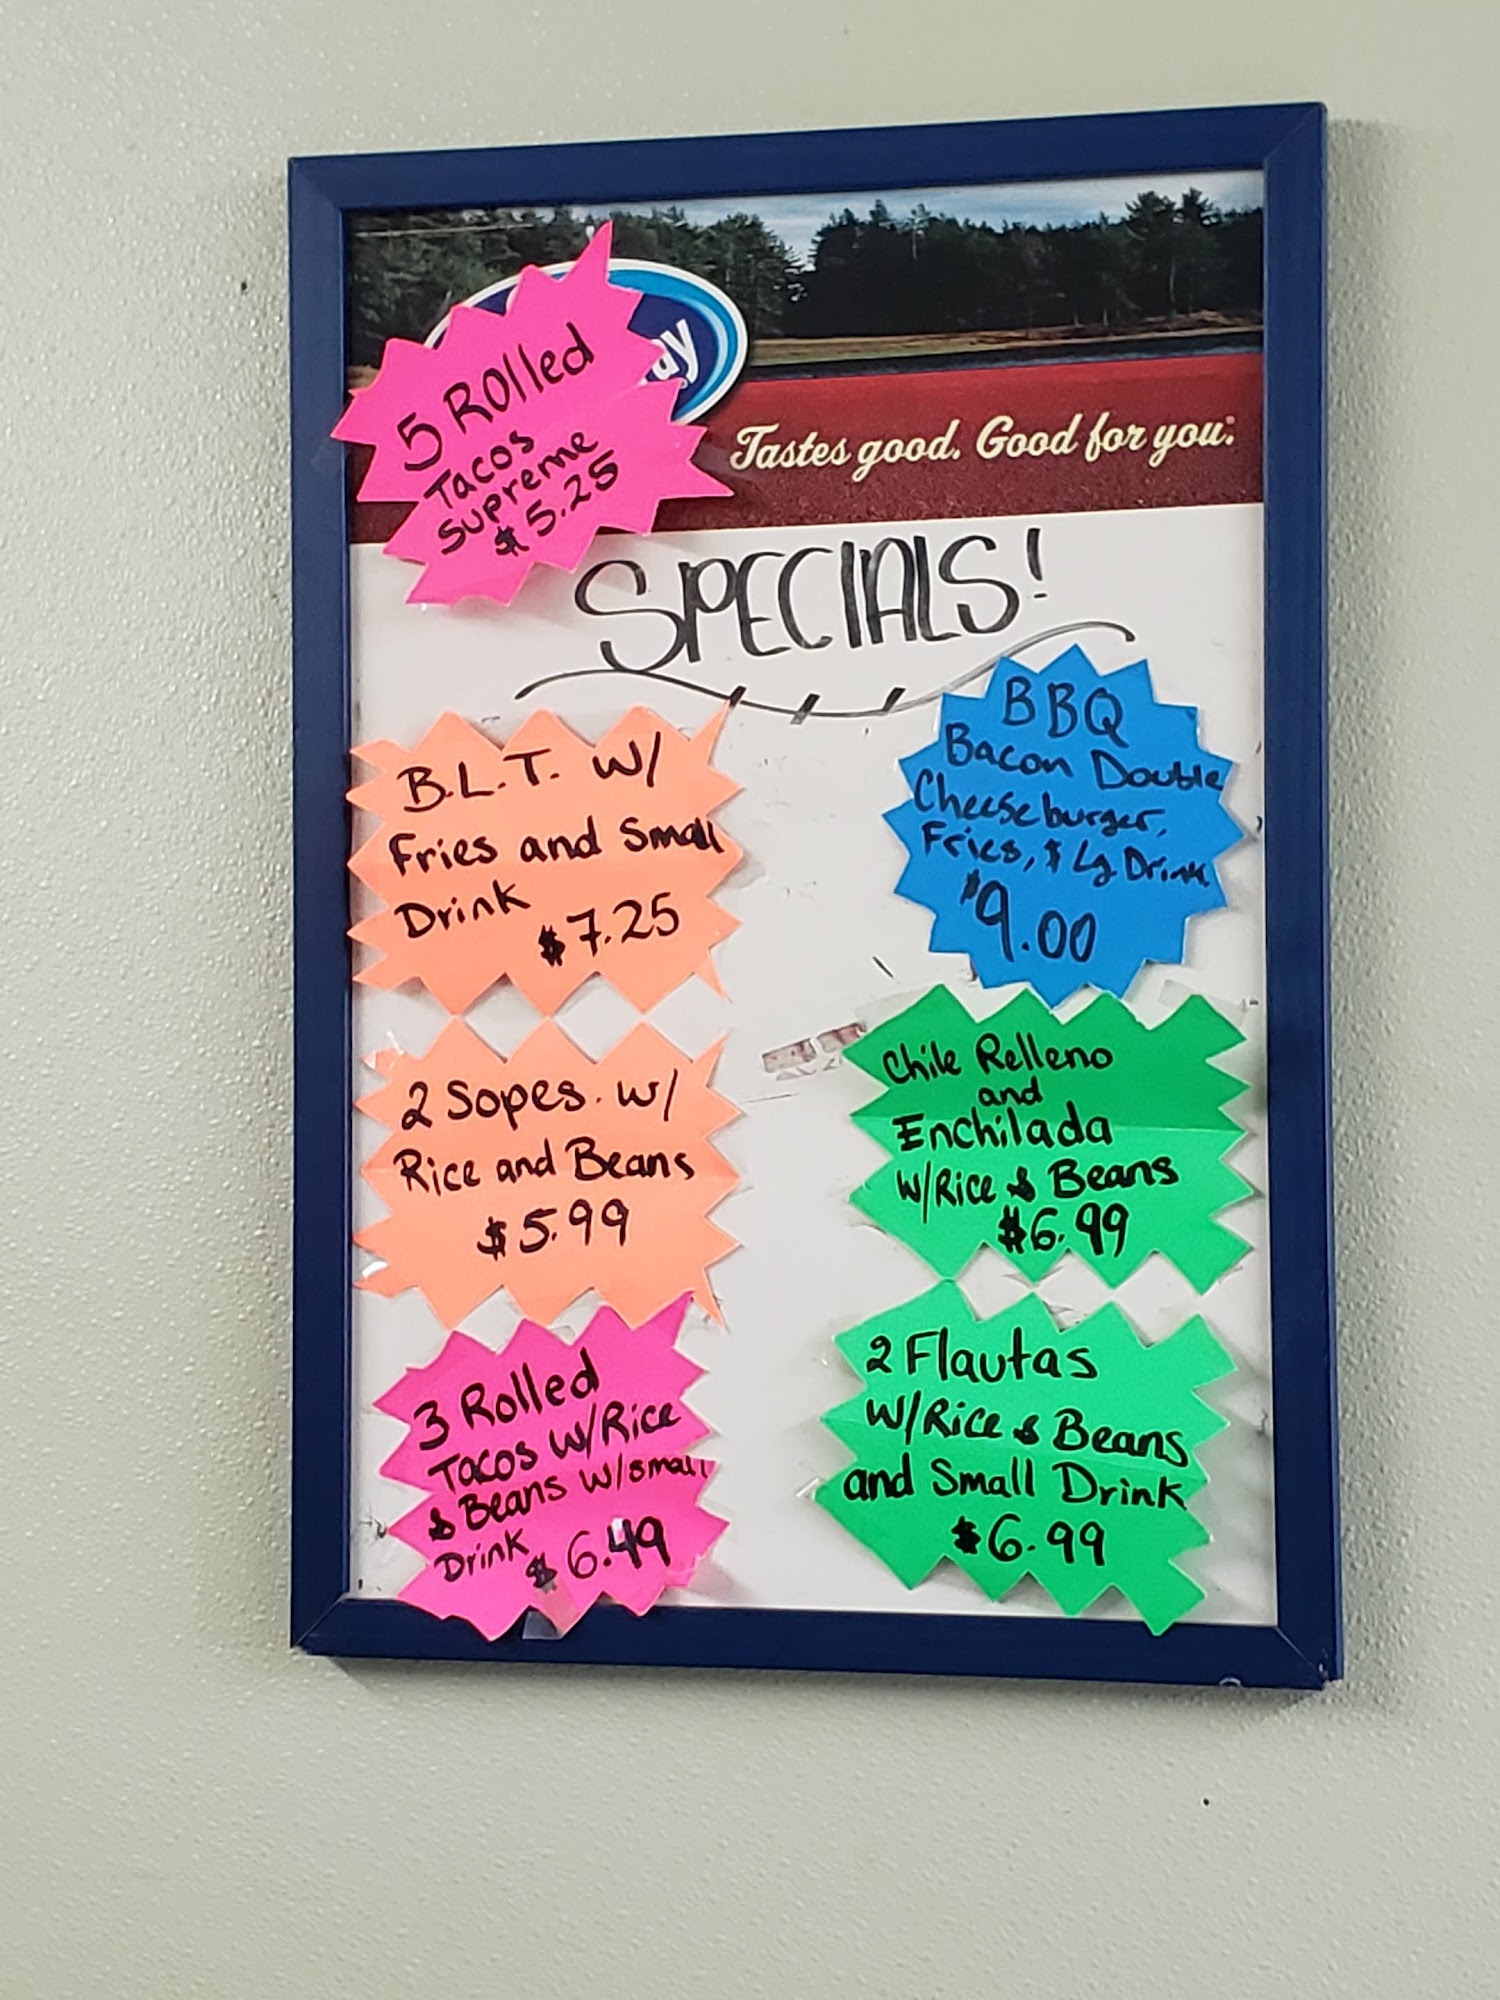 5 Rolled
Tacos
Supreme
$5.25
Tastes good. Good for you.
SPECIALS!
B.L.T. w/
Fries and Small
Drink
$7.25
BBQ
Bacon Double
Cheeseburger,
Fries, & Lg Drink
$9.00
2 Sopes. w/
Rice and Beans
$5.99
Chile Relleno
and
Enchilada
W/Rice & Beans
$6.99
3 Rolled
Tacos w/Rice
& Beans w/small
Drink
$6.49
2 Flautas
W/Rice & Beans
and Small Drink
$6.99